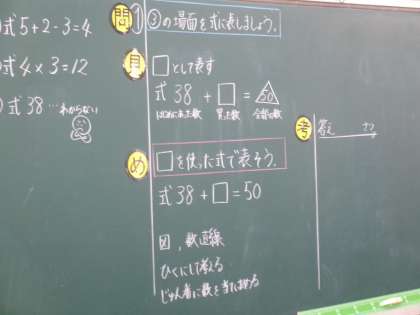 式 5+2-3=4
式 4×3=12
式 38…わからない
問 ① ③の場面を式に表しましょう。
見
□として表す
式 38 + □ = 50
はじめにあった数 買った数 合計の数
め □を使った式で表そう。
式 38 + □ = 50
図、数直線
ひくにして考える
じゅん番に数を当てはめる
考 答え